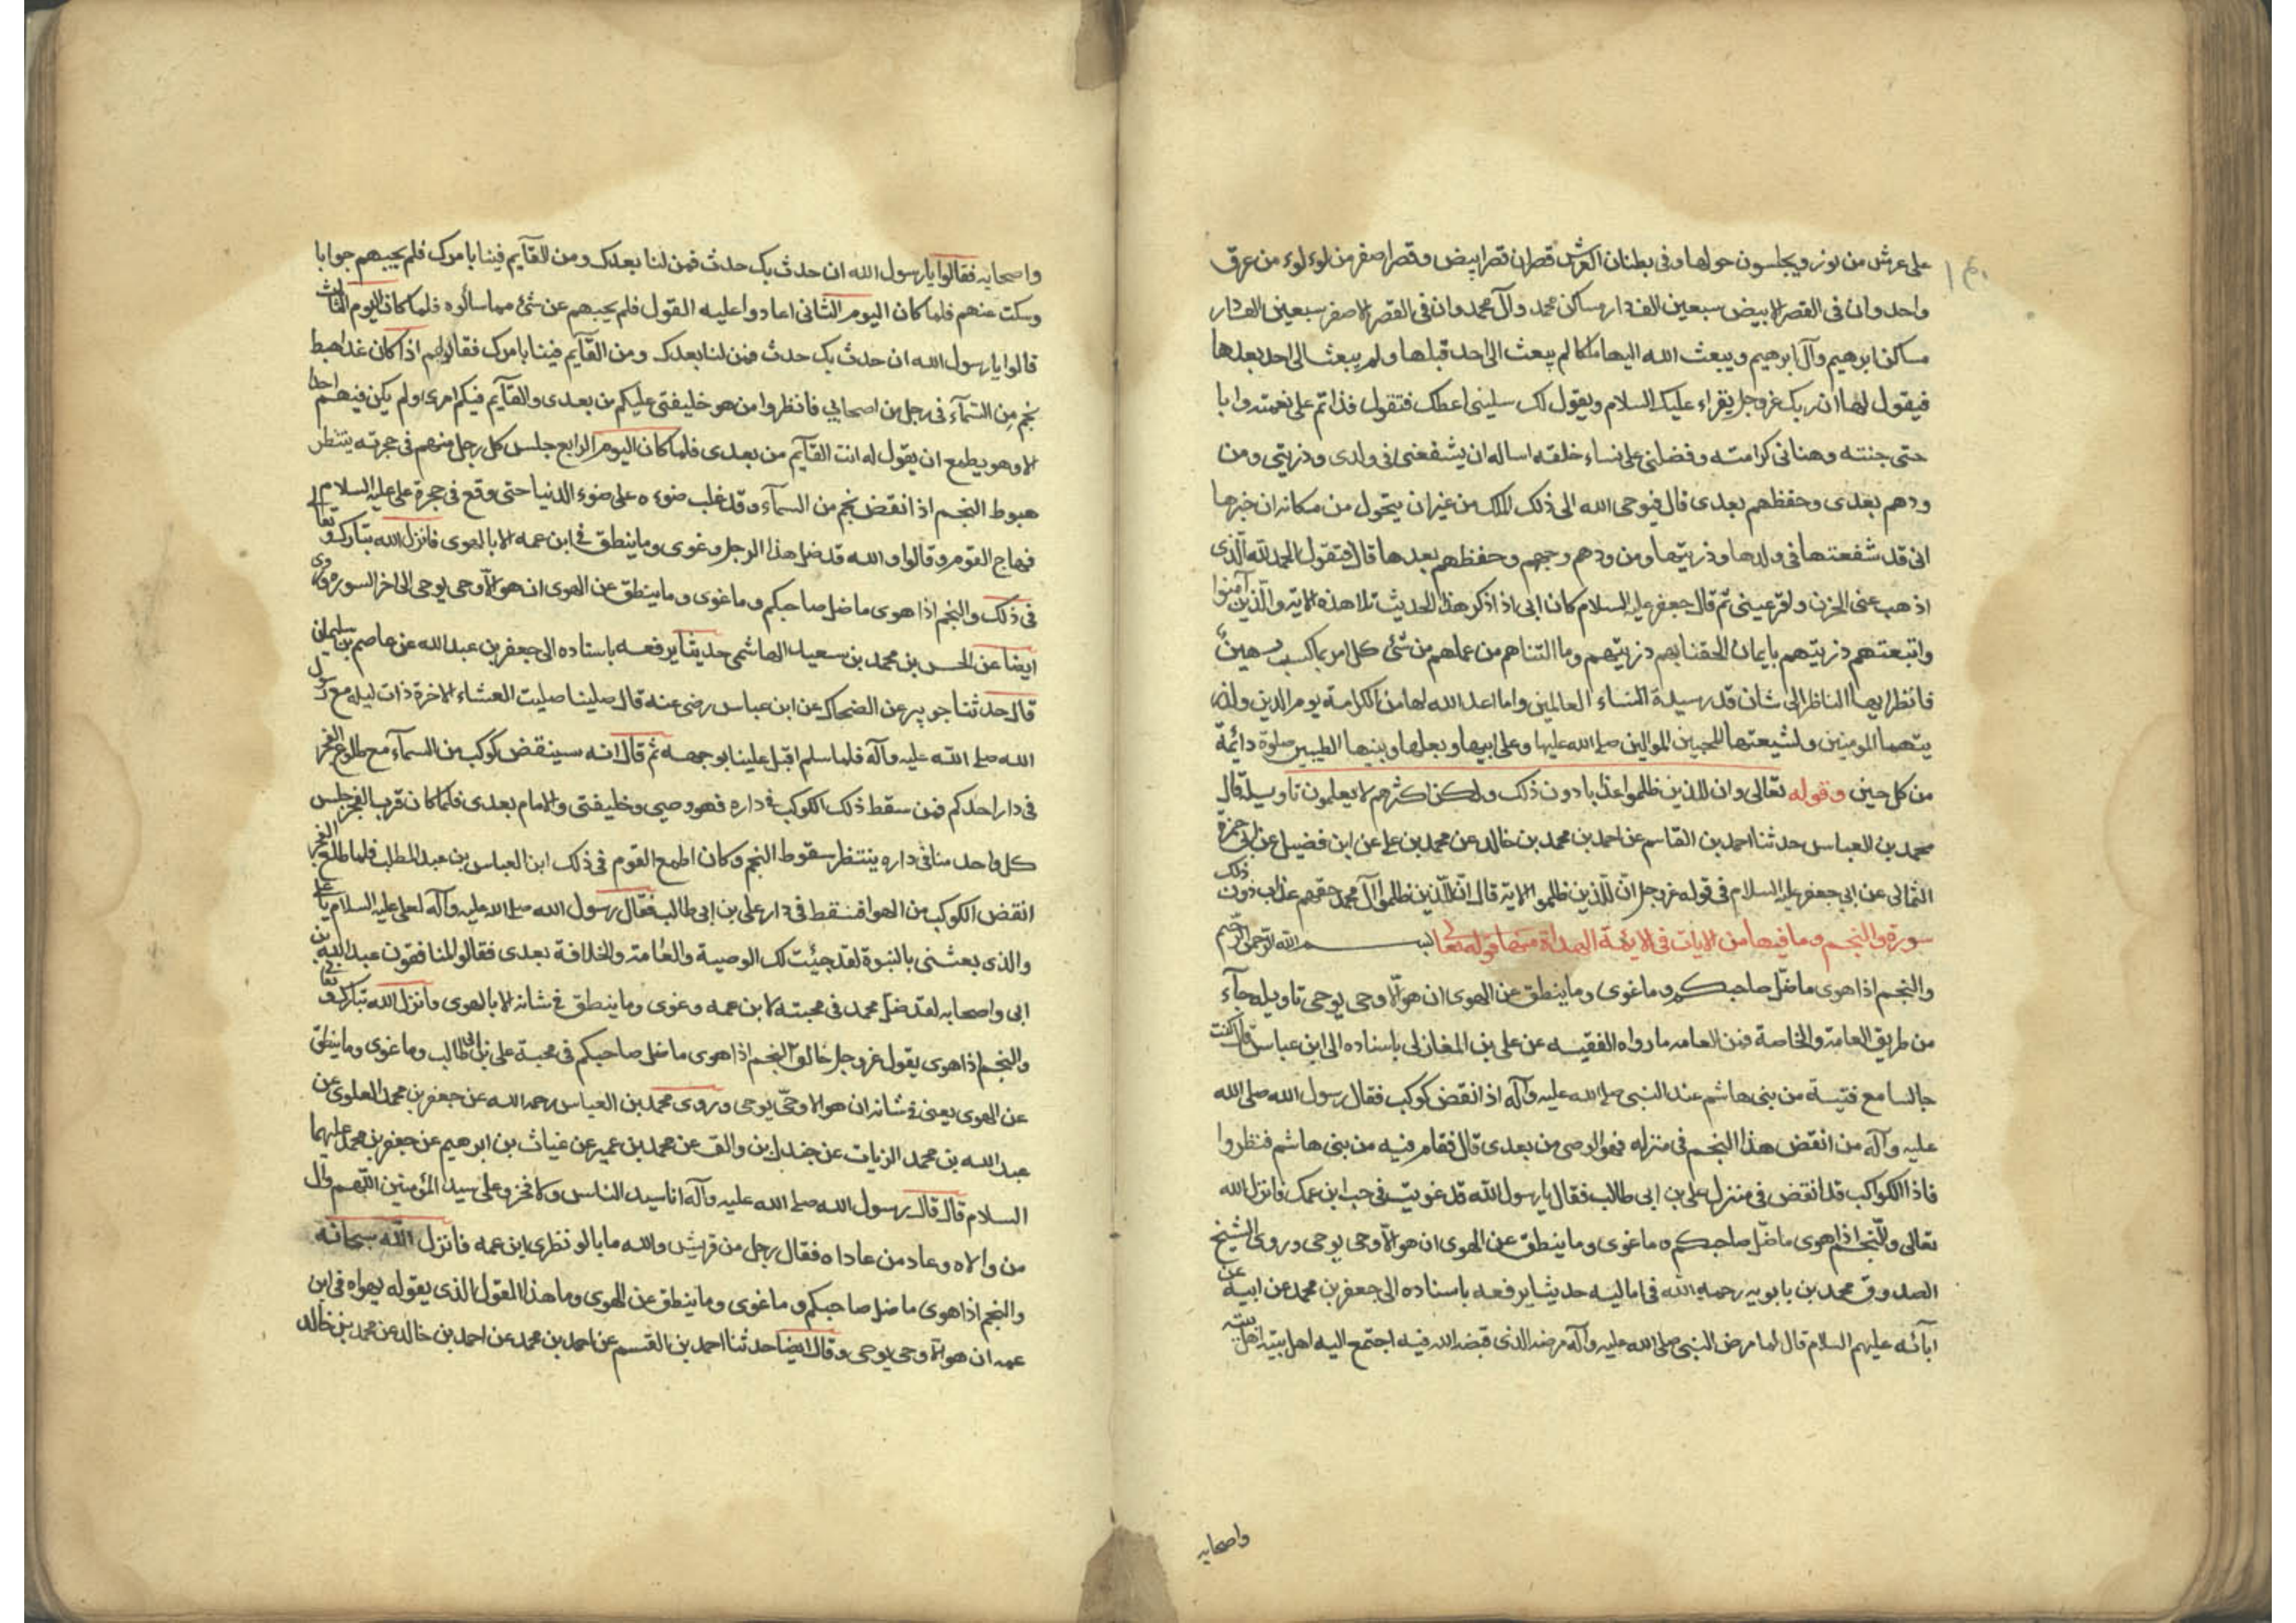 على عرش من نور ويجلسون حولها وفى بطنان العرش قصران قصر ابيض وقصر اصفر من لؤلوء من عرق
واحد وان فى القصر الابيض سبعين الف دار مساكن محمد وآل محمد وان فى القصر الاصفر سبعين الف دار
مساكن ابرهيم وآل ابرهيم ويبعث الله اليها ملكا لم يبعث الى احد قبلها ولم يبعث الى احد بعدها
فيقول لها ان ربك عز وجل يقراء عليك السلام ويقول لك سلينى اعطك فتقول قد اتم على نعمته وابا
حنى جنته وهنانى كرامته وفضلنى على نساء خلقه اساله ان يشفعنى فى ولدى وذريتى ومن
ودهم بعدى وحفظهم بعدى قال فيوحى الله الى ذلك الملك من غير ان يتحول من مكانه ان خبرها
انى قد شفعتها فى ولدها وذريتها ومن ودهم وحبهم وحفظهم بعدها قال فتقول الحمد لله الذى
اذهب عنى الحزن واقر عينى ثم قال جعفر عليه السلام كان ابى اذا ذكر هذا الحديث تلا هذه الاية والذين آمنوا
واتبعتهم ذريتهم بايمان الحقنا بهم ذريتهم وما التناهم من عملهم من شئ كل امرء بما كسب رهين
فانظر ايها الناظر الى شان قدر سيدة النساء العالمين وما اعد الله لها من الكرامة يوم الدين ولذر
يتهما المومنين ولشيعتها المحبين الموالين صلى الله عليها وعلى ابيها وبعلها وبنيها الطيبين صلوة دائمة
من كل حين وقوله تعالى وان للذين ظلموا عذابا دون ذلك ولكن اكثرهم لا يعلمون تاويله قال
محمد بن العباس حدثنا احمد بن القاسم عن احمد بن محمد بن خالد عن محمد بن على عن ابن فضيل عن ابى حمزة
الثمالى عن ابى جعفر عليه السلام فى قوله عز وجل ان للذين ظلموا الاية قال ان للذين ظلموا آل محمد حقهم عذاب دون ذلك
سورة والنجم وما فيها من الايات فى الائمة الهداة منها قوله تعالى بسم الله الرحمن الرحيم
والنجم اذا هوى ما ضل صاحبكم وما غوى وما ينطق عن الهوى ان هو الا وحى يوحى تاويله جآء
من طريق العامة والخاصة فمن العامه ما رواه الفقيه عن على بن المغازلى باسناده الى ابن عباس قال كنت
جالسا مع فتية من بنى هاشم عند النبى صلى الله عليه وآله اذ انقض كوكب فقال رسول الله صلى الله
عليه وآله من انقض هذا النجم فى منزله فهو الوصى من بعدى قال فقام فتية من بنى هاشم فنظروا
فاذا الكواكب قد انقض فى منزل على بن ابى طالب فقال يا رسول الله قد غويت فى حب ابن عمك فانزل الله
تعالى والنجم اذا هوى ما ضل صاحبكم وما غوى وما ينطق عن الهوى ان هو الا وحى يوحى وروى الشيخ
الصدوق محمد بن بابويه رحمه الله فى اماليه حديثا يرفعه باسناده الى جعفر بن محمد عن ابيه عن
آبائه عليهم السلام قال لما مرض النبى صلى الله عليه وآله مرضه الذى قبضه الله فيه اجتمع اليه اهل بيته
واصحابه
واصحابه فقالوا يا رسول الله ان حدث بك حدث فمن لنا بعدك ومن القآيم فينا بامرك فلم يجبهم جوابا
وسكت عنهم فلما كان اليوم الثانى اعادوا عليه القول فلم يجبهم عن شئ مما سألوه فلما كان اليوم الثالث
قالوا يا رسول الله ان حدث بك حدث فمن لنا بعدك ومن القآيم فينا بامرك فقال لهم اذا كان غدا هبط
نجم من السمآء فى رجل من اصحابى فانظروا من هو خليفتى عليكم من بعدى والقآيم فيكم امرى ولم يكن فيهم احدا
الا وهو يطمع ان يقول له انت القآيم من بعدى فلما كان اليوم الرابع جلس كل رجل منهم فى حجرته ينتظر
هبوط النجم اذ انقض نجم من السمآء وقد غلب ضوءه على ضوء الدنيا حتى وقع فى حجرة على عليه السلام
فهاج القوم وقالوا والله قد ضل هذا الرجل وغوى وما ينطق فى ابن عمه الا بالهوى فانزل الله تبارك وتعالى
فى ذلك والنجم اذا هوى ما ضل صاحبكم وما غوى وما ينطق عن الهوى ان هو الا وحى يوحى الى اخر السوره وروى
ايضا عن الحسن بن محمد بن سعيد الهاشمى حديثا يرفعه باسناده الى جعفر بن عبد الله عن عاصم بن سليمان
قال حدثنا جويبر عن الضحاك عن ابن عباس رضى عنه قال صلينا صليت العشاء الاخرة ذات ليله مع رسول
الله صلى الله عليه وآله فلما سلم اقبل علينا بوجهه ثم قال انه سينقض كوكب من السمآء مع طلوع الفجر
فى دار احدكم فمن سقط ذلك الكوكب فى داره فهو وصيى وخليفتى والامام بعدى فلما كان قرب الفجر جلس
كل واحد منا فى داره ينتظر سقوط النجم وكان اطمع القوم فى ذلك ابن العباس بن عبد المطلب فلما طلع الفجر
انقض الكوكب من الهوا فسقط فى دار على بن ابى طالب فقال رسول الله صلى الله عليه وآله لعلى عليه السلام يا على
والذى بعثنى بالنبوة لقد جيئت لك الوصية والامامة والخلافة بعدى فقالوا المنافقون عبد الله بن
ابى واصحابه لقد ضل محمد فى محبته لابن عمه وغوى وما ينطق فى شانه الا بالهوى وانزل الله تبارك وتعالى
والنجم اذا هوى يقول عز وجل خالق النجم اذا هوى ما ضل صاحبكم فى محبة على بن ابى طالب وما غوى وما ينطق
عن الهوى يعنى فى شانه ان هو الا وحى يوحى وروى محمد بن العباس رحمه الله عن جعفر بن محمد العلوى عن
عبد الله بن محمد الزيات عن جندل بن والق عن محمد بن عمير عن غياث بن ابرهيم عن جعفر بن محمد عليهما
السلام قال قال رسول الله صلى الله عليه وآله انا سيد الناس ولا فخر وعلى سيد المؤمنين اللهم وال
من والاه وعاد من عاداه فقال رجل من قريش والله ما يالو نطرى ابن عمه فانزل الله سبحانه
والنجم اذا هوى ما ضل صاحبكم وما غوى وما ينطق عن الهوى وما هذا القول الذى يقوله بهواه فى ابن
عمه ان هو الا وحى يوحى وقال ايضا حدثنا احمد بن القسم عن احمد بن محمد عن احمد بن خالد عن محمد بن خالد